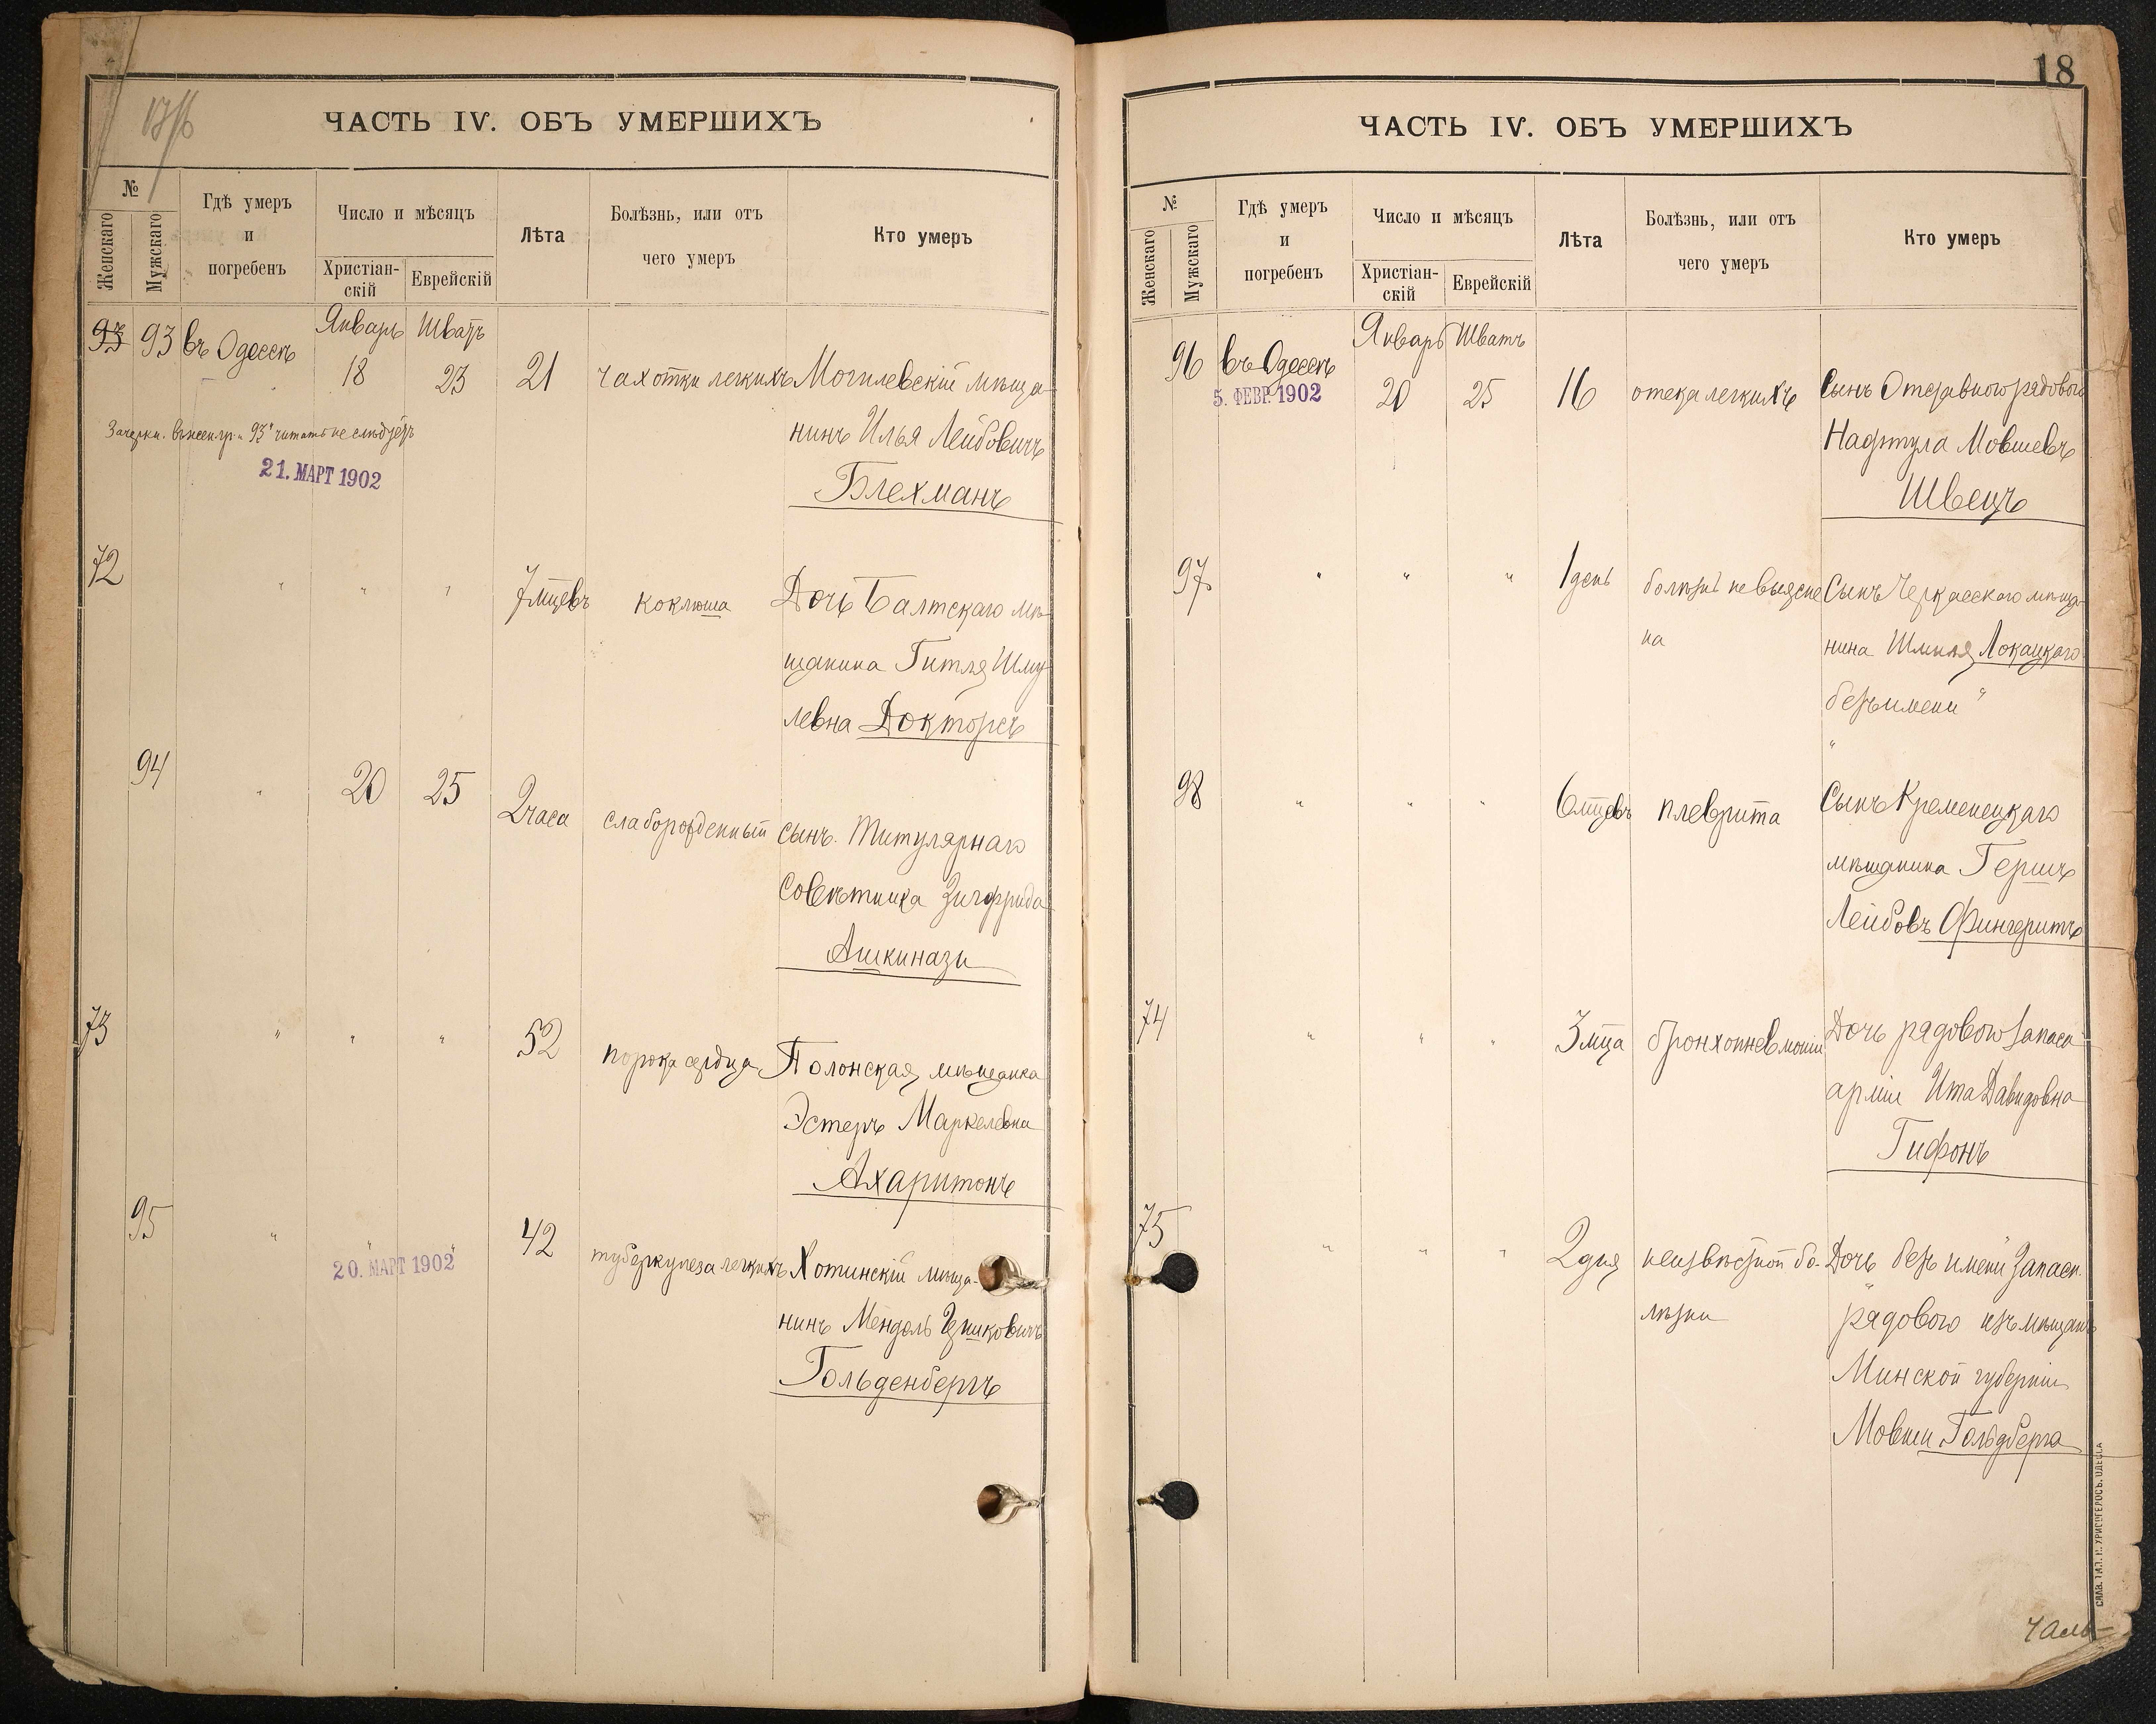 ЧАСТЬ IV. ОБЪ УМЕРШИХЪ
№
Женскаго
Мужскаго
Гдѣ умеръ
и
погребенъ
Число и мѣсяцъ
Христіан-
скій
Еврейскій
Лѣта
Болѣзнь, или отъ
чего умеръ
Кто умеръ
Январь Шватъ
93 93 въ Одессѣ
18 23 21 чахотки легкихъ Могилевскій мѣща-
нинъ Илья Лейбовичъ
Блехманъ
Зачеркн. въ женск. гр. „93" читать не слѣдуетъ
21. МАРТ 1902
72 " " " 7 мцевъ коклюша Дочь Балтскаго мѣ-
щанина Гитля Шму
левна Докторъ
94 " 20 25 2 часа слаборожденный сынъ Титулярнаго
Совѣтника Зигфрида
Ашкинази
73 " " " 52 порока сердца Полонская мѣщанка
Эстеръ Маркелевна
Ахаритонъ
95 " " " 42 туберкулеза легкихъ Хотинскій мѣща-
20. МАРТ 1902
нинъ Мендель Ицковичъ
Гольденбергъ
18
ЧАСТЬ IV. ОБЪ УМЕРШИХЪ
№
Женскаго
Мужскаго
Гдѣ умеръ
и
погребенъ
Число и мѣсяцъ
Христіан-
скій
Еврейскій
Лѣта
Болѣзнь, или отъ
чего умеръ
Кто умеръ
Январь Шватъ
96 въ Одессѣ
5. ФЕВР. 1902
20 25 16 отека легкихъ Сынъ Отставного рядового
Нафтула Мовшевъ
Швецъ
97 " " " 1 день болѣзнь невыясне Сынъ Черкасскаго мѣща-
на
нина Шмиля Локацкаго
„безъ имени"
98 " " " 6 мцевъ плеврита Сынъ Кременецкаго
мѣщанина Гершъ
Лейбовъ Фингеритъ
74 " " " 3 мца бронхопневмоніи Дочь рядового запаса
арміи Ита Давидовна
Гифонъ
75 " " " 2 дня неизвѣстной бо- Дочь „безъ имени" Запасн.
лѣзни
рядового изъ мѣщанъ
Минской губерніи
Мовши Гольдберга
СЛАВ. ТИП. Н. ХРИСОГЕЛОСЪ. ОДЕССА